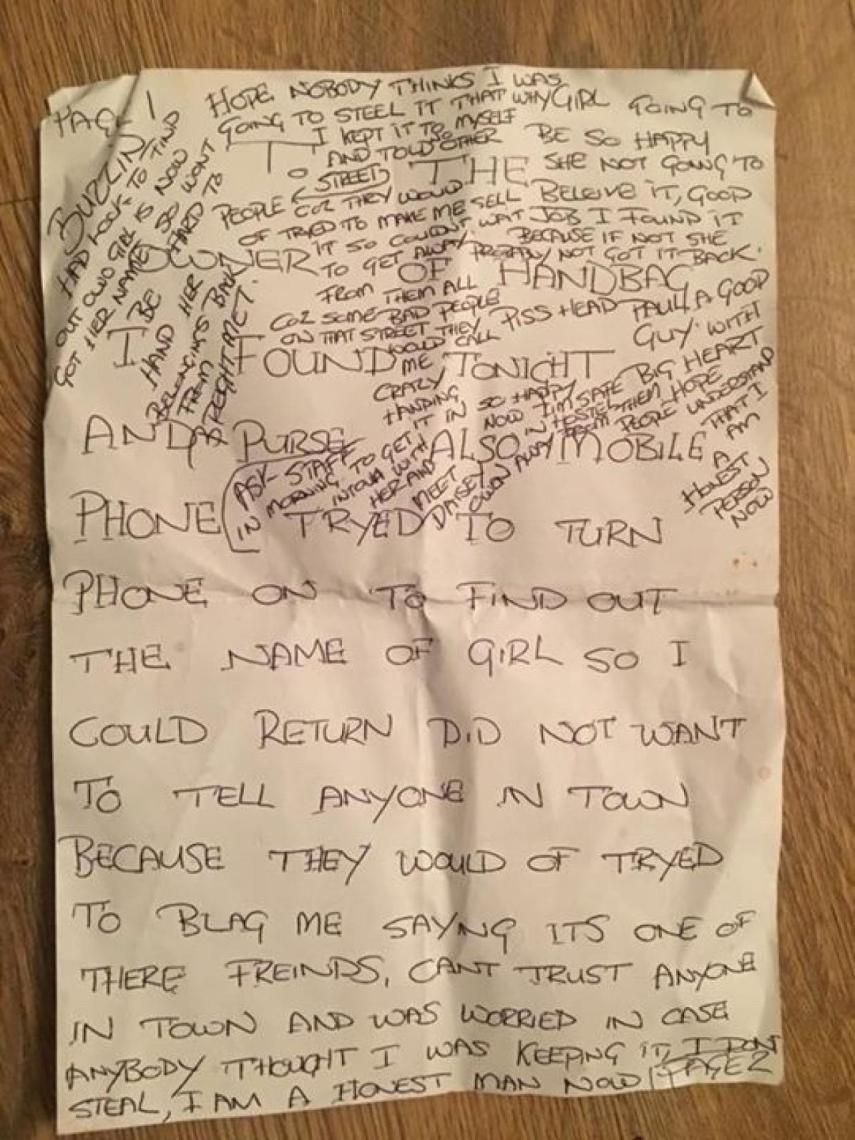 PAGE 1
HOPE NOBODY THINKS I WAS
GOING TO STEEL IT THAT WHY
I KEPT IT TO MYSELF
AND TOLD OTHER
STREET
PEOPLE COZ THEY WOULD
OF TRIED TO MAKE ME SELL
IT SO COULDN'T WAIT
TO GET AWAY
FROM THEM ALL
COZ SOME BAD PEOPLE
ON THAT STREET THEY
WOULD CALL
ME
CRAZY
HANDING
IT IN SO HAPPY
NOW I'M SAFE
IN
OWON AWAY FROM THEM HOPE
PEOPLE UNDERSTAND
THAT I
AM
A
HONEST
PERSON
NOW
GIRL GOING TO
BE SO HAPPY
SHE NOT GOING TO
BELEIVE IT, GOOD
JOB I FOUND IT
BECAUSE IF NOT SHE
NOT GOT IT BACK.
PISS HEAD PAUL A GOOD
GUY WITH
BIG HEART
BUZZIN,
HAD LOOK TO FIND
OUT OWO GIRL IS NOW
GOT HER NAME SO WONT
BE HARD TO
HAND HER
BELONGINGS BACK
FROM
ME.
TO THE
OWNER OF HANDBAG
I FOUND TONIGHT
AND A PURSE ALSO MOBILE
ASK STAFF
IN MORNING TO GET
INTOUH WITH
HER AND
MEET
DAISEY
PHONE TRYED TO TURN
PHONE ON TO FIND OUT
THE NAME OF GIRL SO I
COULD RETURN DID NOT WANT
TO TELL ANYONE IN TOWN
BECAUSE THEY WOULD OF TRYED
TO BLAG ME SAYNG ITS ONE OF
THERE FREINDS, CANT TRUST ANYONE
IN TOWN AND WAS WORRIED IN CASE
ANYBODY THOUGHT I WAS KEEPING IT, I DON'T
STEAL, I AM A HONEST MAN NOW PAGE 2